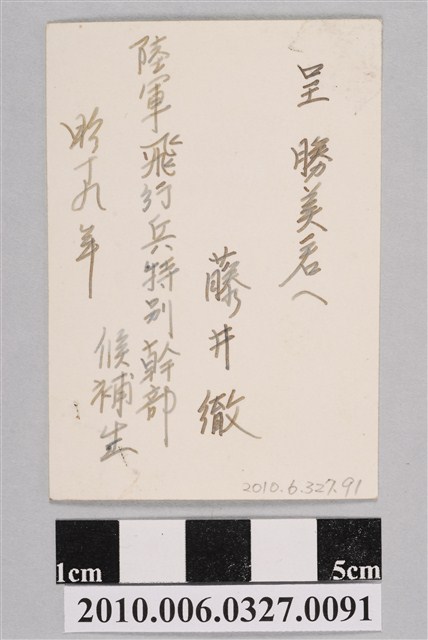 呈 勝美君へ
藤井 徹
陸軍飛行兵特別幹部
候補生
昭十九年
2010.6.327.91
1cm
5cm
2010.006.0327.0091